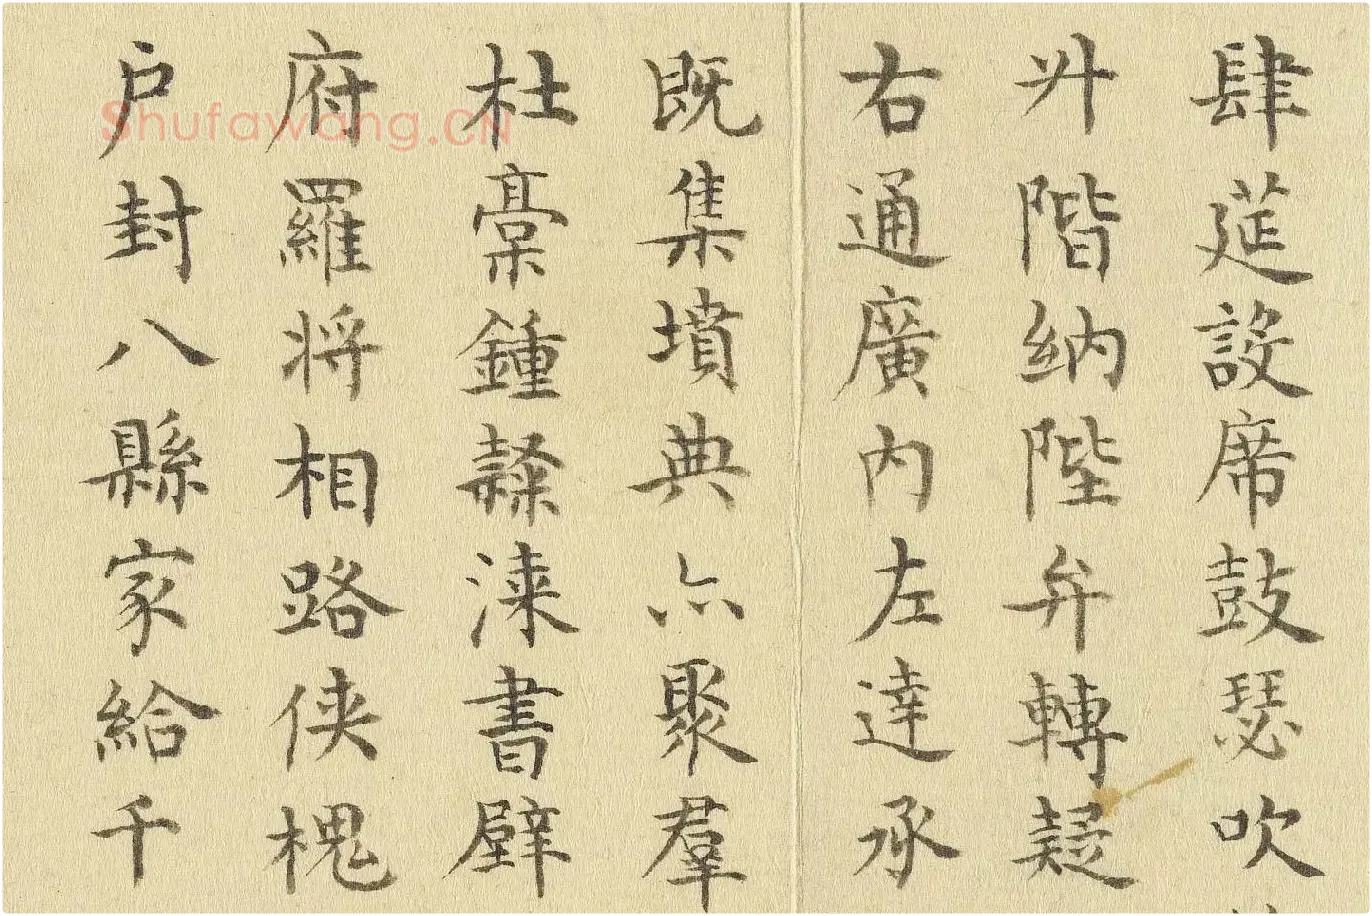 肆莚設席鼓瑟吹
升階納陛弁轉疑
右通廣內左達承
既集墳典亦聚羣
杜稾鍾隸漆書壁
府羅將相路俠槐
户封八縣家給千
Shufawang.CN